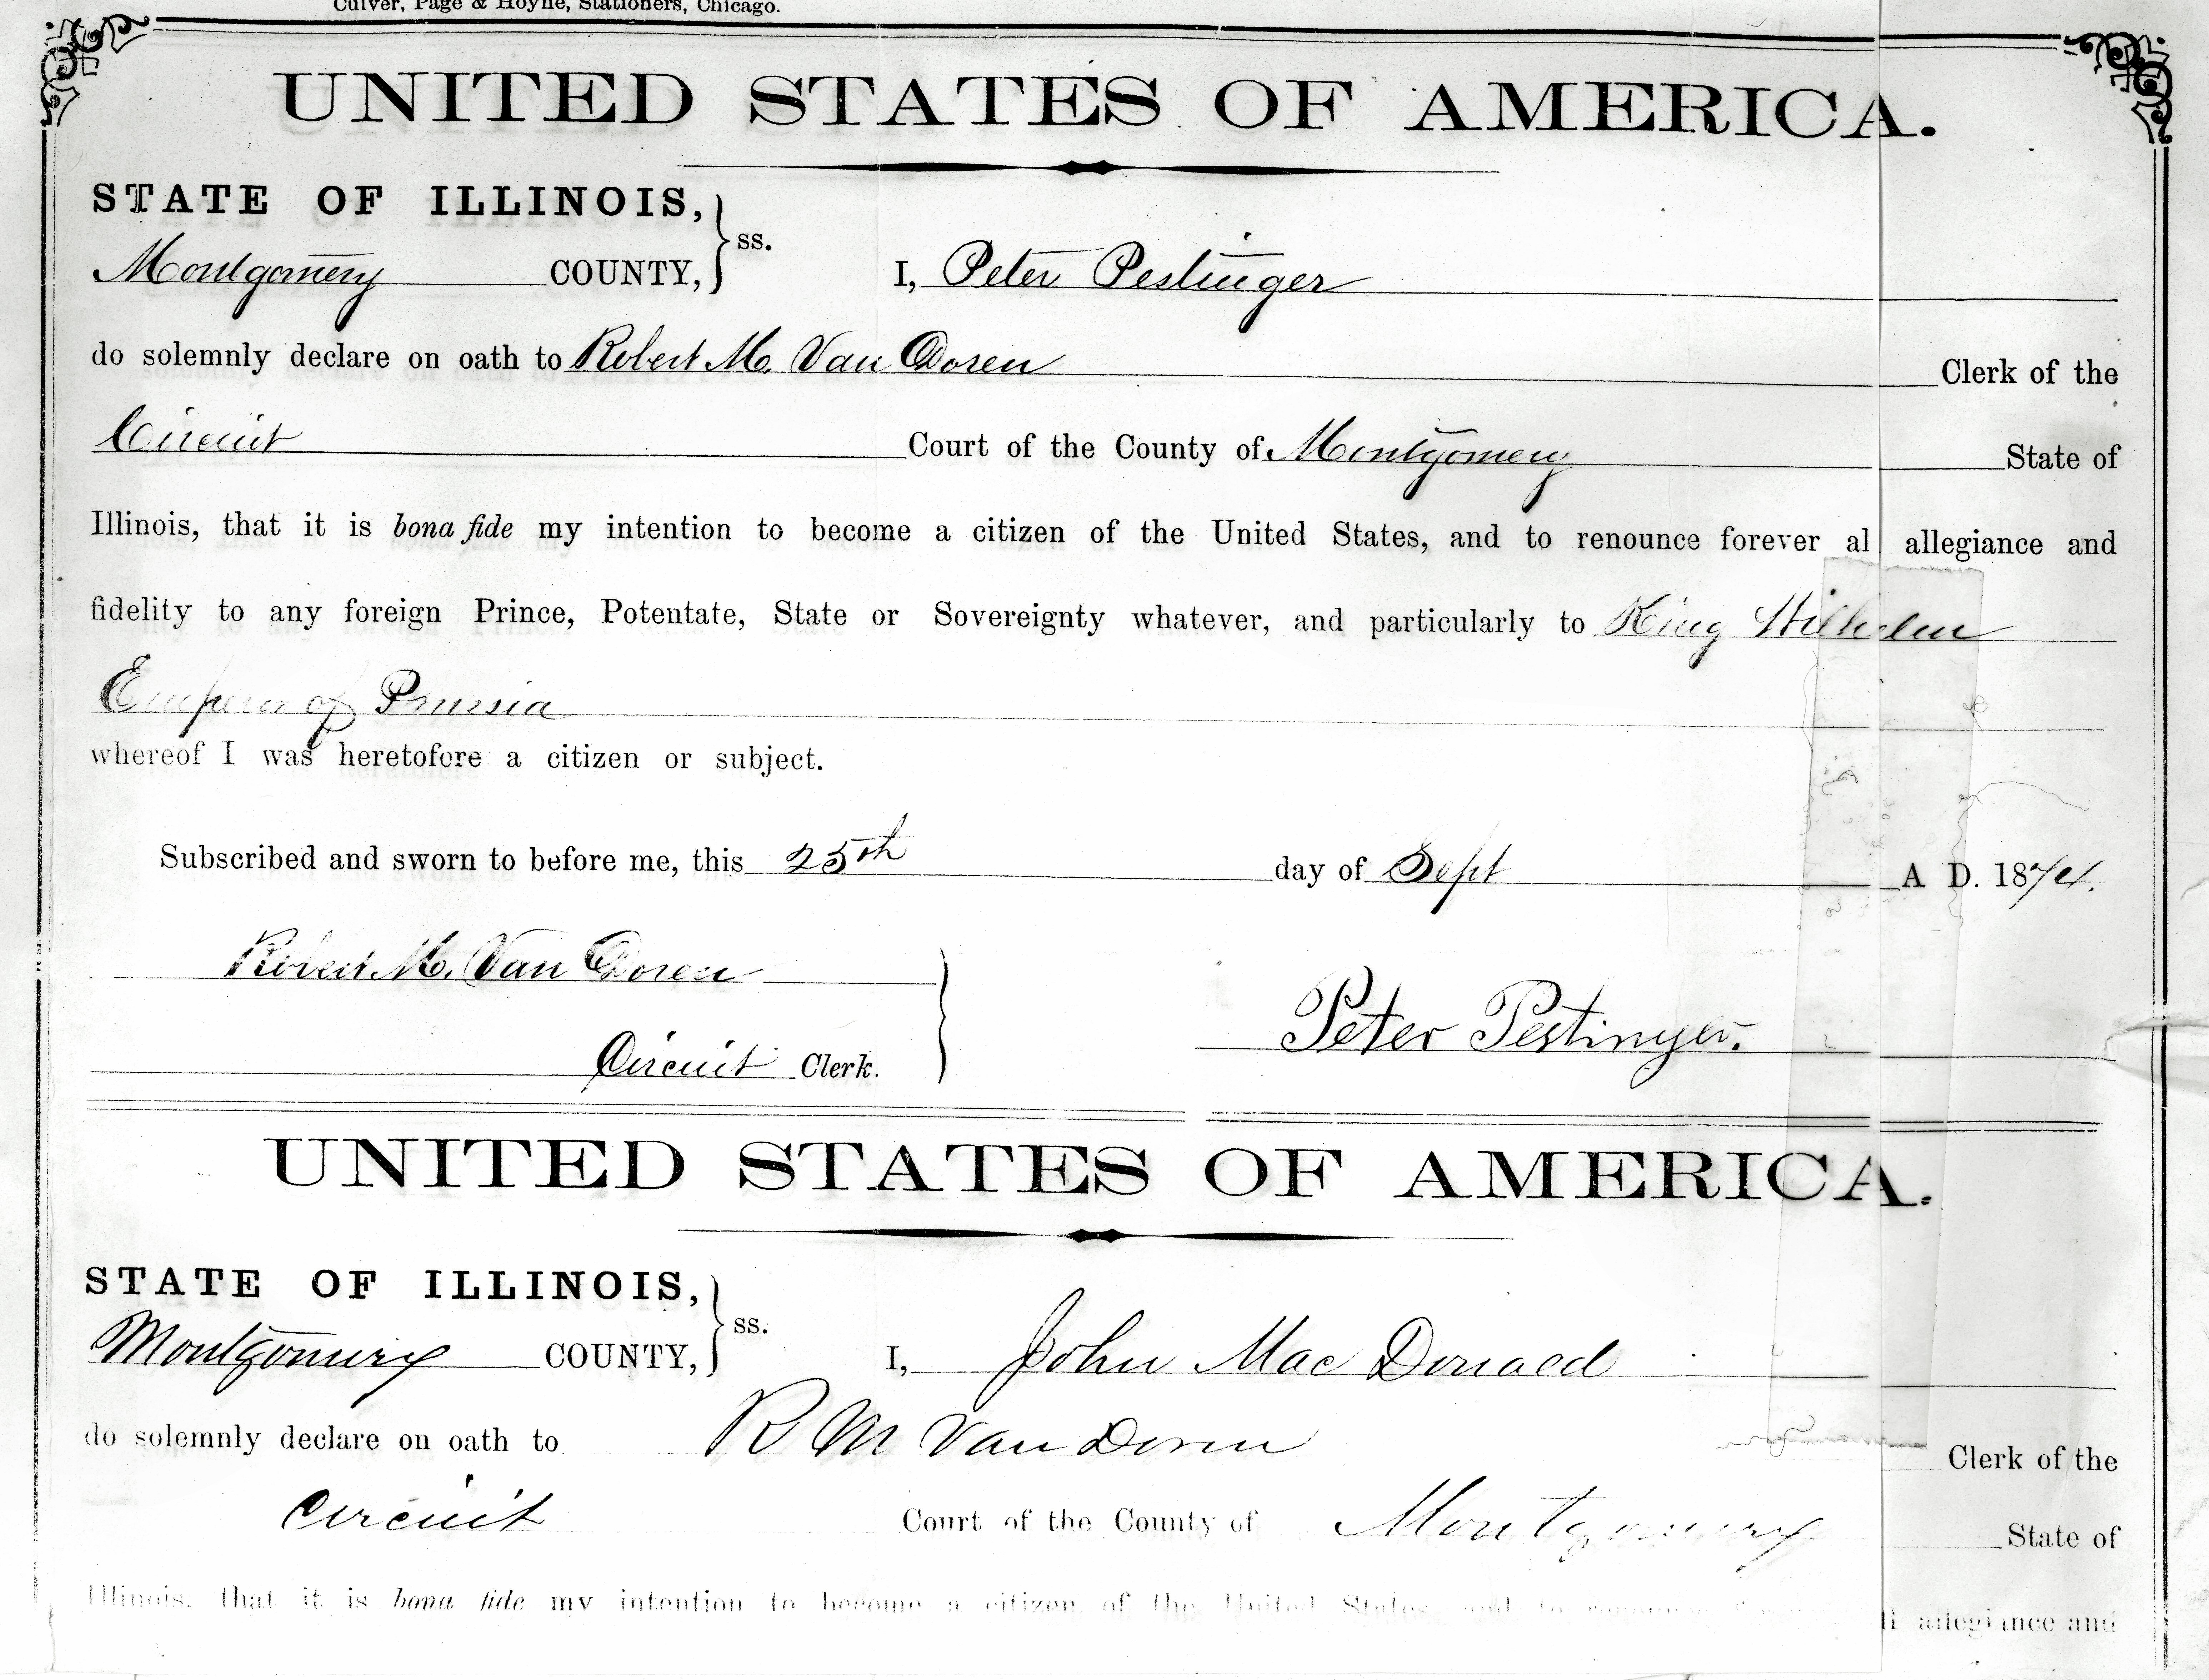 Culver, Page & Hoyne, Stationers, Chicago.
UNITED STATES OF AMERICA.
STATE OF ILLINOIS,
Montgomery COUNTY, ss. I, Peter Pestinger
do solemnly declare on oath to Robert M. Van Doren Clerk of the
Circuit Court of the County of Montgomery State of
Illinois, that it is bona fide my intention to become a citizen of the United States, and to renounce forever al allegiance and
fidelity to any foreign Prince, Potentate, State or Sovereignty whatever, and particularly to King Wilhelm
Emperor of Prussia
whereof I was heretofore a citizen or subject.
Subscribed and sworn to before me, this 25th day of Sept A D. 1874.
Robert M. Van Doren
Peter Pestinger.
Circuit Clerk.
UNITED STATES OF AMERICA.
STATE OF ILLINOIS,
Montgomery COUNTY, ss. I, John Mac Donald
do solemnly declare on oath to R M Van Doren Clerk of the
Circuit Court of the County of Montgomery State of
Illinois, that it is bona fide my intention to become a citizen of the United States and to allegiance and